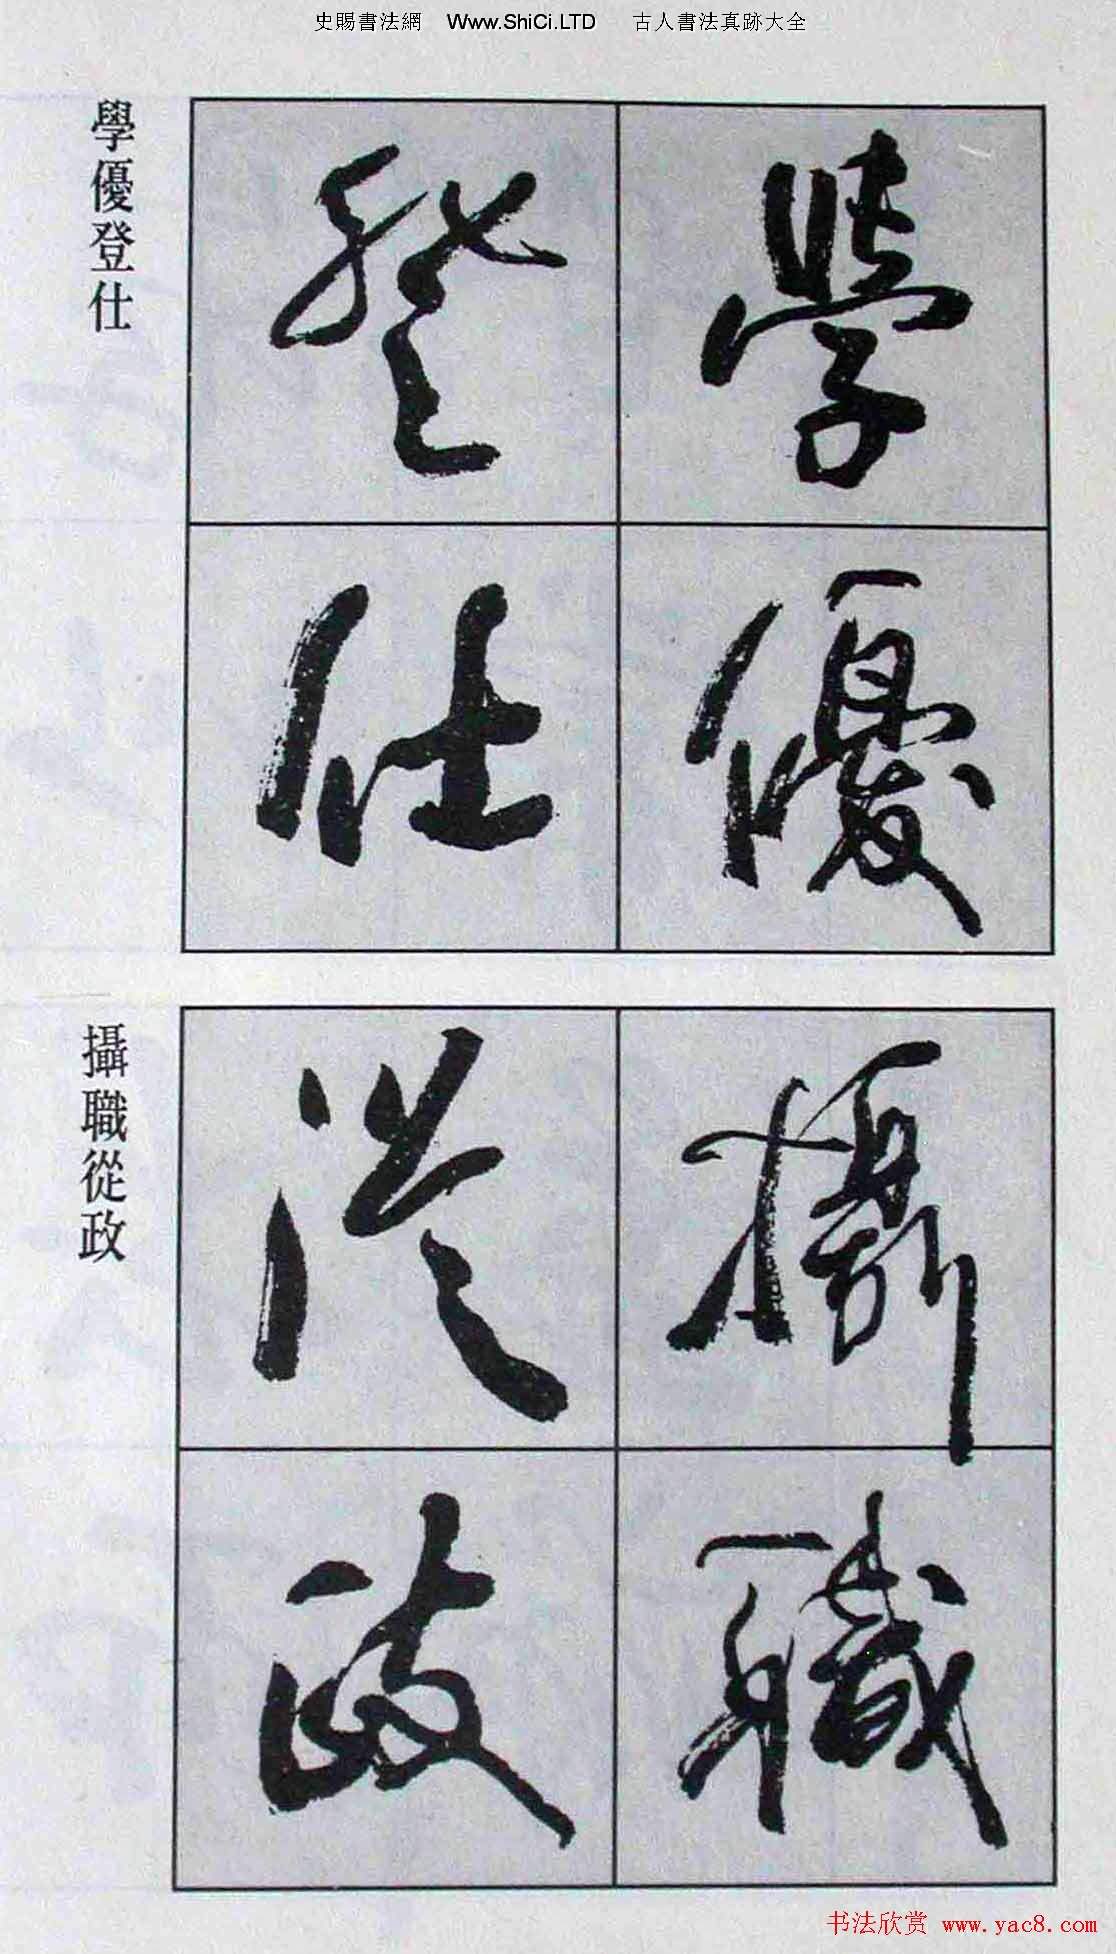 史賜書法網 Www.ShiCi.LTD 古人書法真跡大全
學優
登仕
學優登仕
攝職
從政
攝職從政
书法欣赏 www.yac8.com